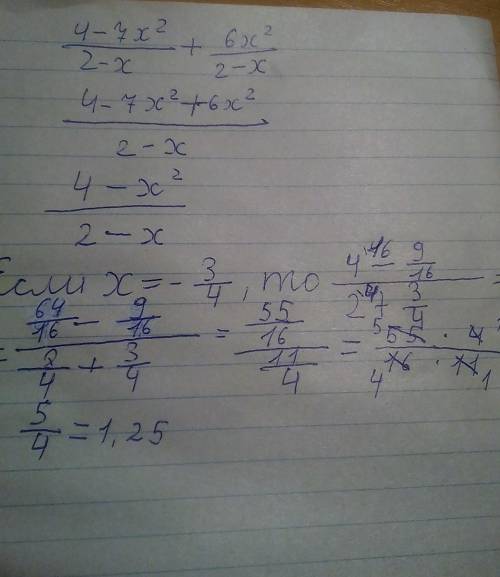 (4-7x²)/(2-x) + 6x²/(2-x)
(4-7x²+6x²)/(2-x)
(4-x²)/(2-x)
Если x = -3/4, то (4 - 9/16)/(2 + 3/4) =
= (64/16 - 9/16)/(8/4 + 3/4) = (55/16)/(11/4) = (55 · 4)/(16 · 11)
5/4 = 1,25